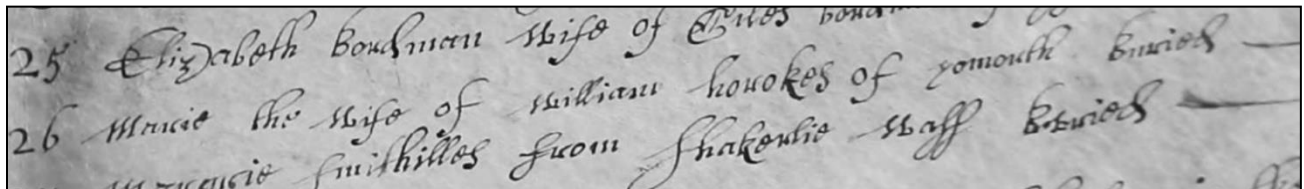 25 Elizabeth bordman wife of Giles
26 Marie the wife of William houokes of yomouth buried
smithilles from shakerlie was buried